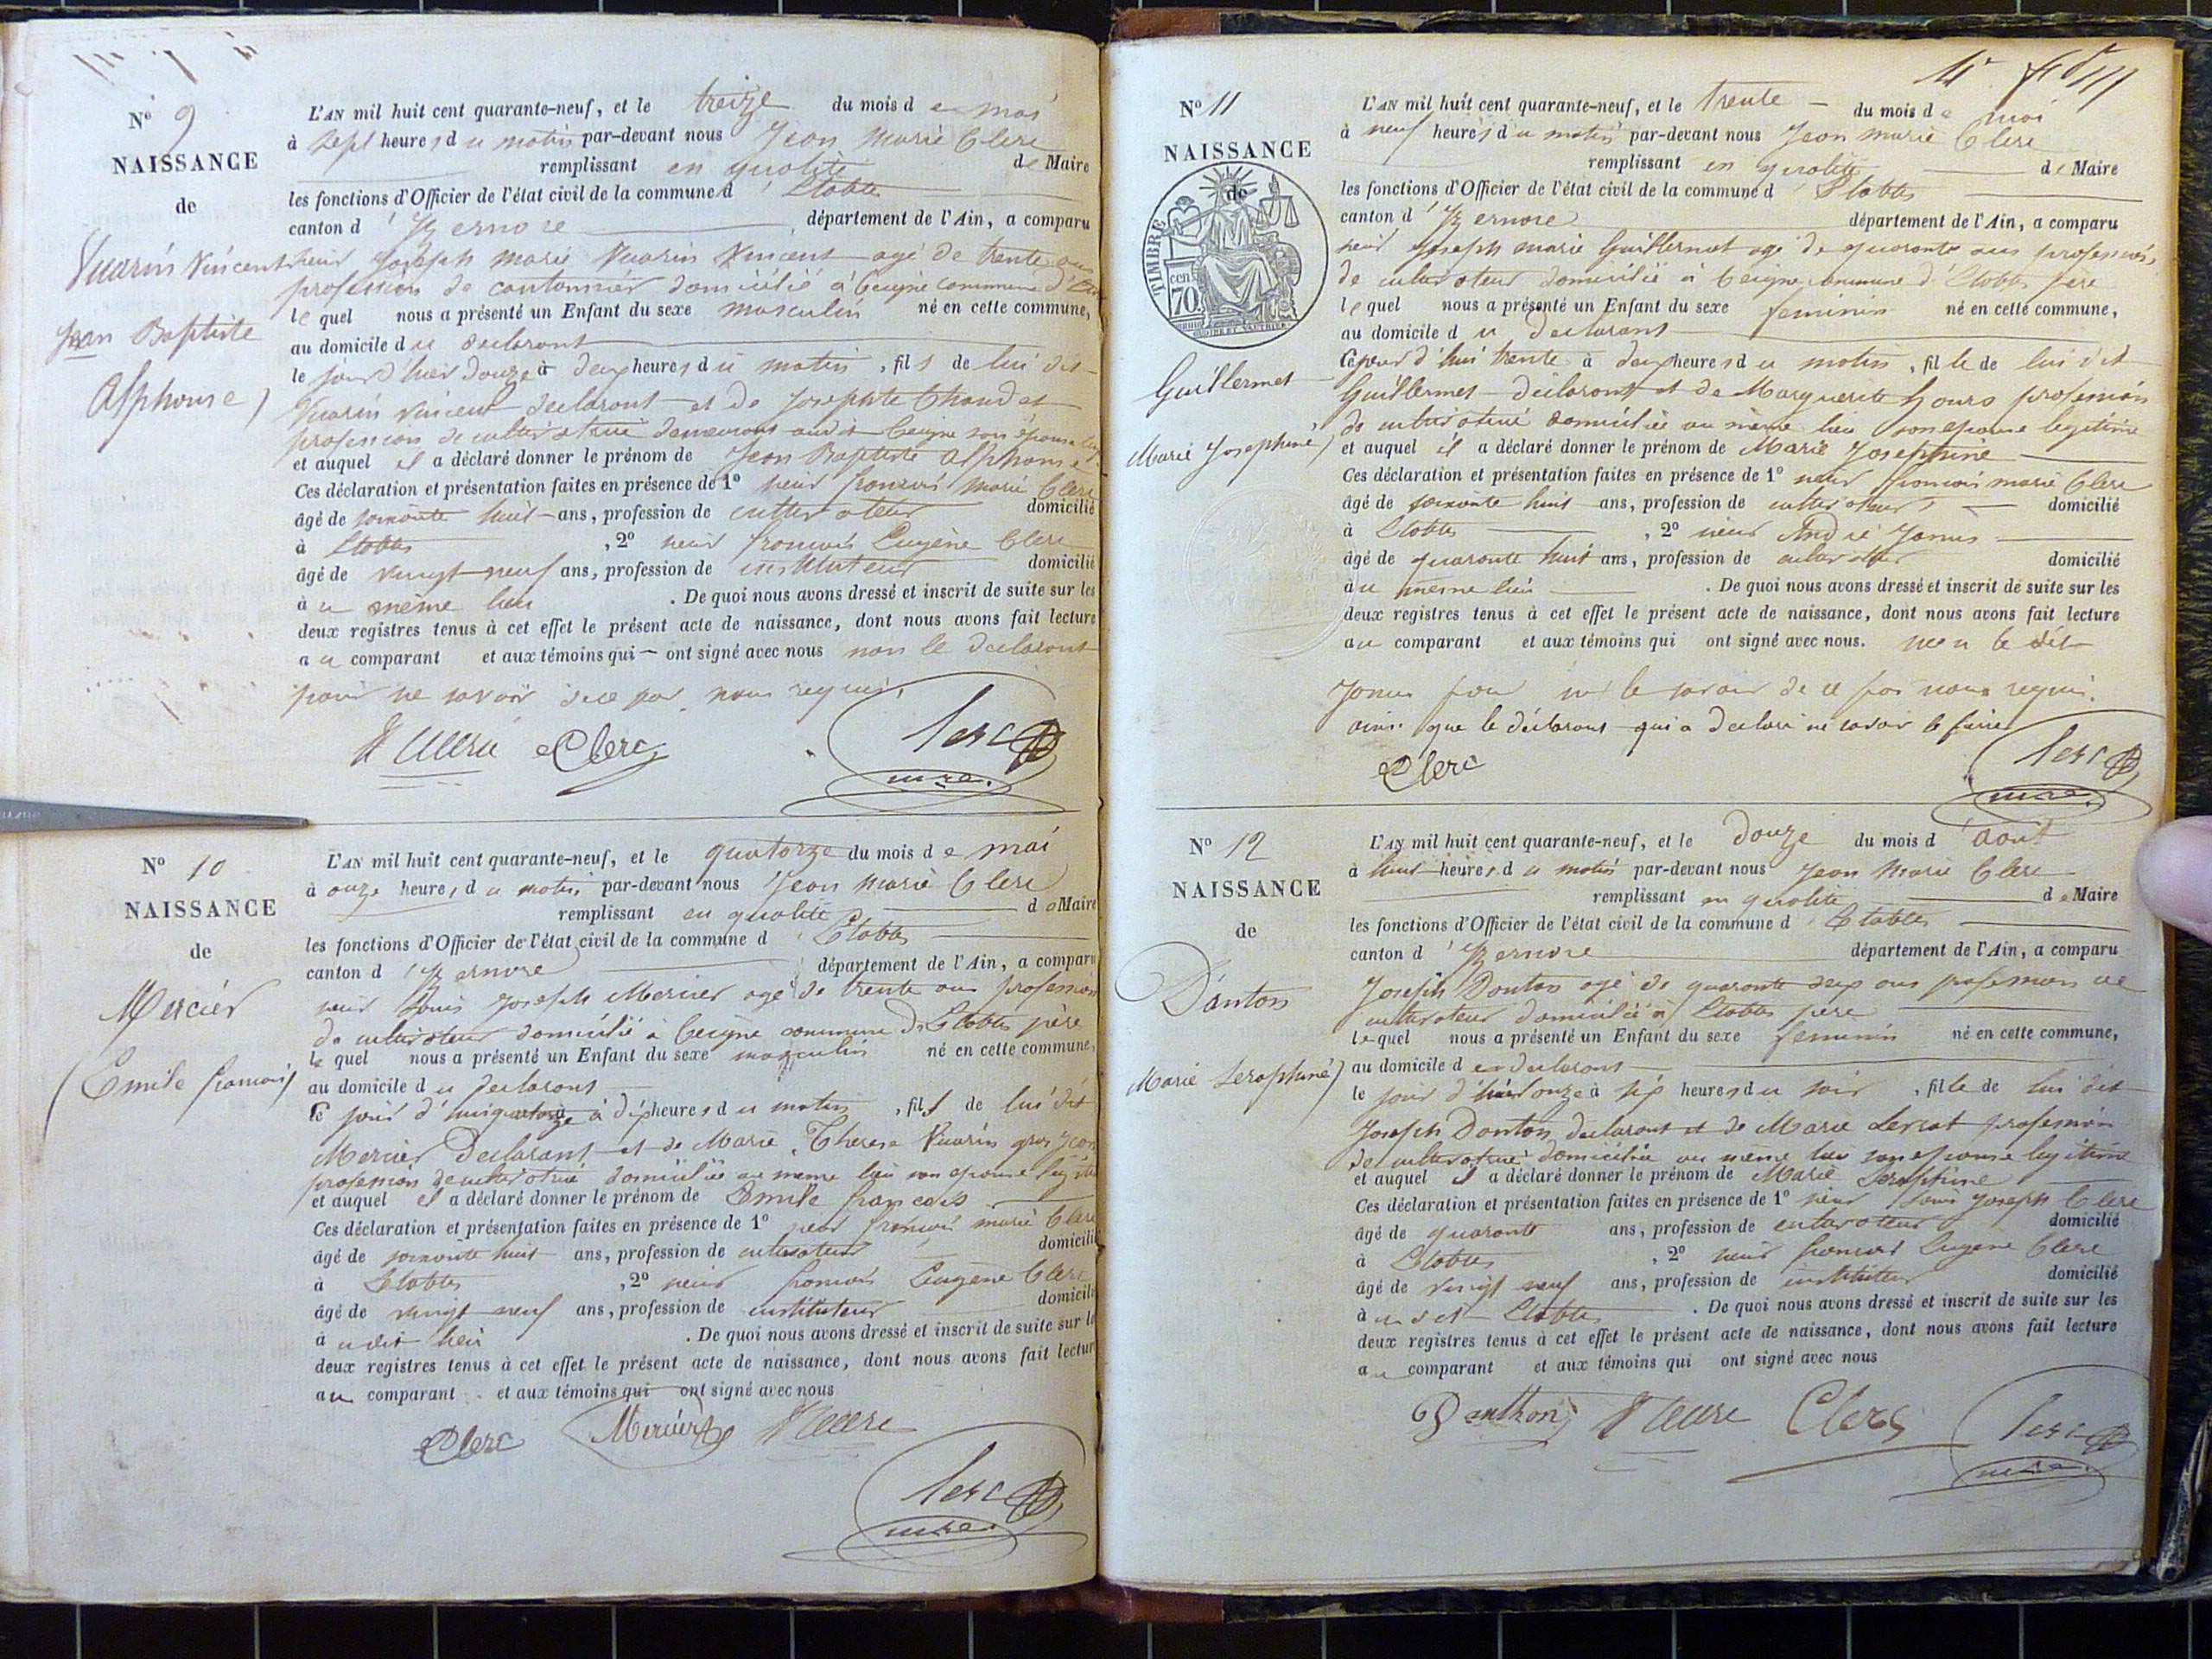 N° 9
NAISSANCE
de
Vuarin Vincent
Jean Baptiste
Alphonse
L'AN mil huit cent quarante-neuf, et le treize du mois de mai
à sept heures du matin par-devant nous Jean Marie Clerc
remplissant en qualité de Maire
les fonctions d'Officier de l'état civil de la commune d'Etables
canton d'Izernore département de l'Ain, a comparu
sieur Joseph Marie Vuarin Vincent agé de trente ans
profession de cantonnier domicilié à Ceigne commune
lequel nous a présenté un Enfant du sexe masculin né en cette commune,
au domicile du declarant
le jour d'hier douze à deux heures du matin, fils de lui dit
Vuarin Vincent declarant et de Josephte Chaudet
profession de cultivatrice demeurant audit Ceigne son épouse
et auquel il a déclaré donner le prénom de Jean Baptiste Alphonse
Ces déclaration et présentation faites en présence de 1° sieur francois marie Clerc
âgé de soixante huit ans, profession de cultivateur domicilié
à Etables, 2° sieur francois Eugène Clerc
âgé de vingt neuf ans, profession de instituteur domicilié
au même lieu. De quoi nous avons dressé et inscrit de suite sur les
deux registres tenus à cet effet le présent acte de naissance, dont nous avons fait lecture
au comparant et aux témoins qui ont signé avec nous non le declarant
pour ne savoir de ce par nous requis.
Clerc Clerc
mre.
N° 10
NAISSANCE
de
Mercier
Emile francois
L'AN mil huit cent quarante-neuf, et le quatorze du mois de mai
à onze heures du matin par-devant nous Jean Marie Clerc
remplissant en qualité de Maire
les fonctions d'Officier de l'état civil de la commune d'Etables
canton d'Izernore département de l'Ain, a comparu
sieur Louis Joseph Mercier agé de trente ans profession
de cultivateur domicilié à Ceigne commune d'Etables père
lequel nous a présenté un Enfant du sexe masculin né en cette commune,
au domicile du declarant
le jour d'hui quatorze à dix heures du matin, fils de lui dit
Mercier Declarant et de Marie Therese Vuarin gros Jean
profession de cultivatrice domiciliée au meme lieu son epouse
et auquel il a déclaré donner le prénom de Emile francois
Ces déclaration et présentation faites en présence de 1° sieur francois marie Clerc
âgé de soixante huit ans, profession de cultivateur domicilié
à Etables, 2° sieur francois Eugène Clerc
âgé de vingt neuf ans, profession de instituteur domicilié
audit lieu. De quoi nous avons dressé et inscrit de suite sur les
deux registres tenus à cet effet le présent acte de naissance, dont nous avons fait lecture
au comparant et aux témoins qui ont signé avec nous
Clerc Mercier Clerc
mre.
N° 11
NAISSANCE
de
TIMBRE
70 cen
Guillermet
Marie Josephine
L'AN mil huit cent quarante-neuf, et le trente du mois de mai
à neuf heures du matin par-devant nous Jean marie Clerc
remplissant en qualité de Maire
les fonctions d'Officier de l'état civil de la commune d'Etables
canton d'Izernore département de l'Ain, a comparu
sieur Joseph marie Guillermet agé de quarante ans profession
de cultivateur domicilié à Ceigne commune d'Etables père
lequel nous a présenté un Enfant du sexe feminin né en cette commune,
au domicile du declarant
Ce jour d'hui trente à deux heures du matin, fille de lui dit
Guillermet declarant et de Marguerite Hours profession
de cultivatrice domiciliée au même lieu son epouse legitime
et auquel il a déclaré donner le prénom de Marie Josephine
Ces déclaration et présentation faites en présence de 1° sieur francois marie Clerc
âgé de soixante huit ans, profession de cultivateur domicilié
à Etables, 2° sieur André Janus
âgé de quarante huit ans, profession de cultivateur domicilié
au meme lieu. De quoi nous avons dressé et inscrit de suite sur les
deux registres tenus à cet effet le présent acte de naissance, dont nous avons fait lecture
au comparant et aux témoins qui ont signé avec nous. non le dit
Janus pour ne le savoir de ce par nous requis.
ainsi que le déclarant qui a declaré ne savoir le faire
Clerc
mre.
N° 12
NAISSANCE
de
Danton
Marie Seraphine
L'AN mil huit cent quarante-neuf, et le douze du mois d'aout
à huit heures du matin par-devant nous Jean Marie Clerc
remplissant en qualité de Maire
les fonctions d'Officier de l'état civil de la commune d'Etables
canton d'Izernore département de l'Ain, a comparu
Joseph Danton agé de quarante deux ans profession de
cultivateur domicilié à Etables père
lequel nous a présenté un Enfant du sexe feminin né en cette commune,
au domicile du declarant
le jour d'hier onze à six heures du soir, fille de lui dit
Joseph Danton declarant et de Marie Lescot profession
de cultivatrice domiciliée au même lieu son epouse legitime
et auquel il a déclaré donner le prénom de Marie Seraphine
Ces déclaration et présentation faites en présence de 1° sieur Louis Joseph Clerc
âgé de quarante ans, profession de cultivateur domicilié
à Etables, 2° sieur francois Eugene Clerc
âgé de vingt neuf ans, profession de instituteur domicilié
audit Etables. De quoi nous avons dressé et inscrit de suite sur les
deux registres tenus à cet effet le présent acte de naissance, dont nous avons fait lecture
au comparant et aux témoins qui ont signé avec nous
Danthon Clerc Clerc
mre.